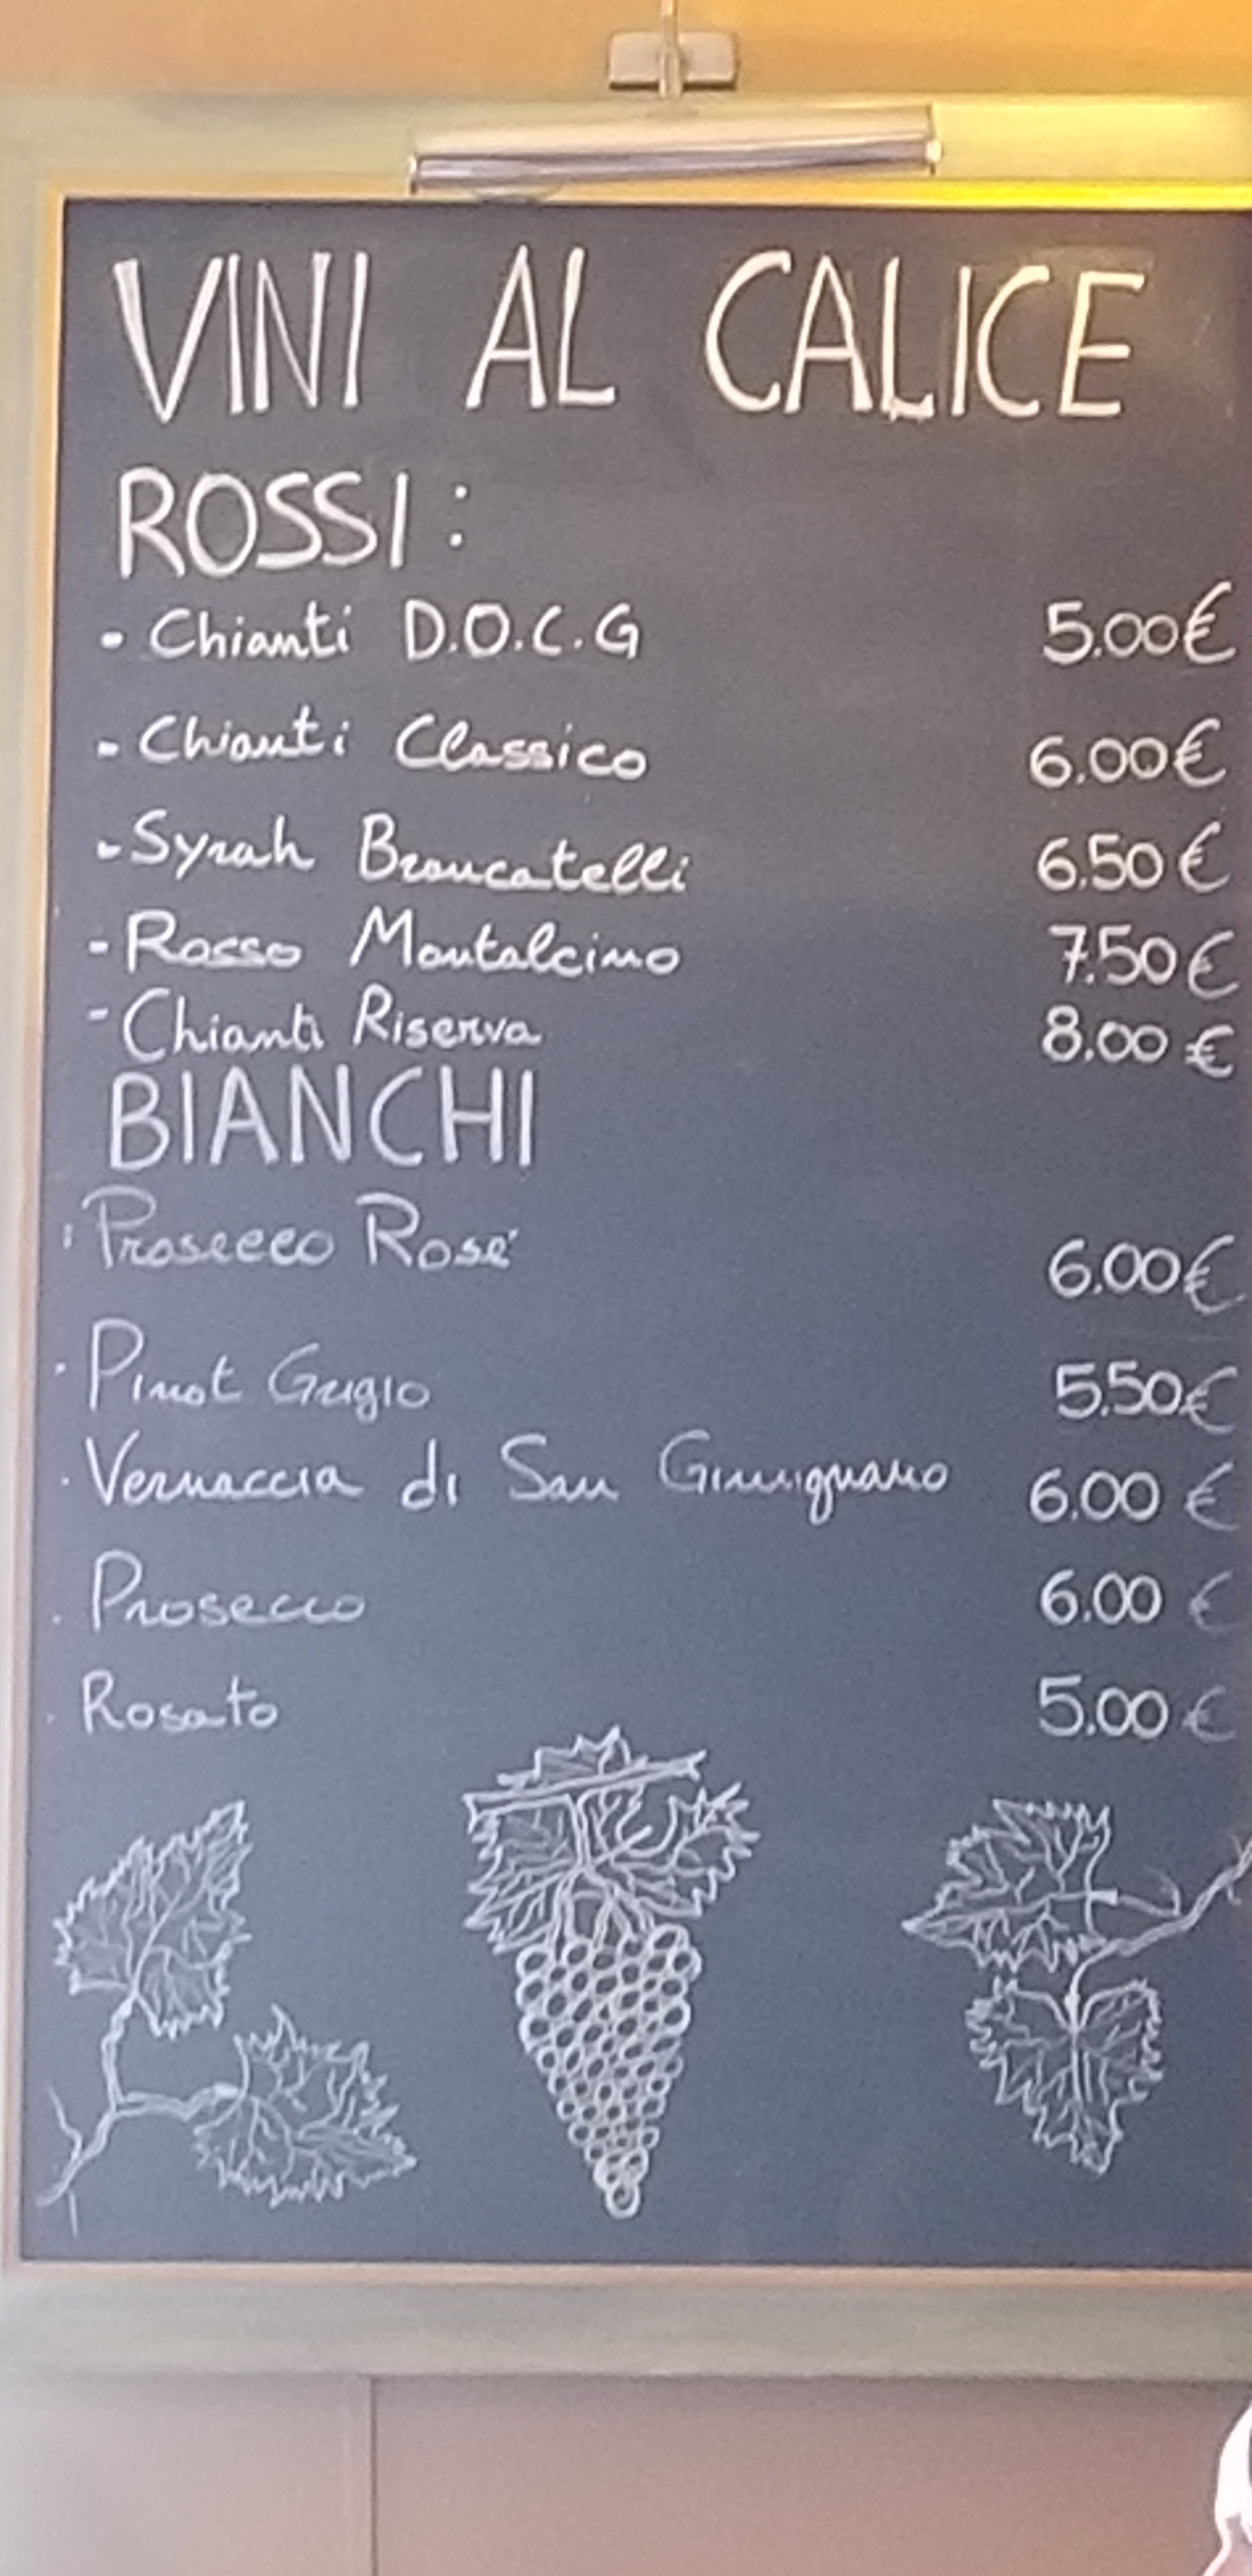 VINI AL CALICE
ROSSI:
- Chianti D.O.C.G 5.00€
- Chianti Classico 6.00€
- Syrah Brancatelli 6.50€
- Rosso Montalcino 7.50€
- Chianti Riserva 8.00€
BIANCHI
· Prosecco Rosé 6.00€
· Pinot Grigio 5.50€
· Vernaccia di San Gimignano 6.00 €
· Prosecco 6.00 €
· Rosato 5.00 €